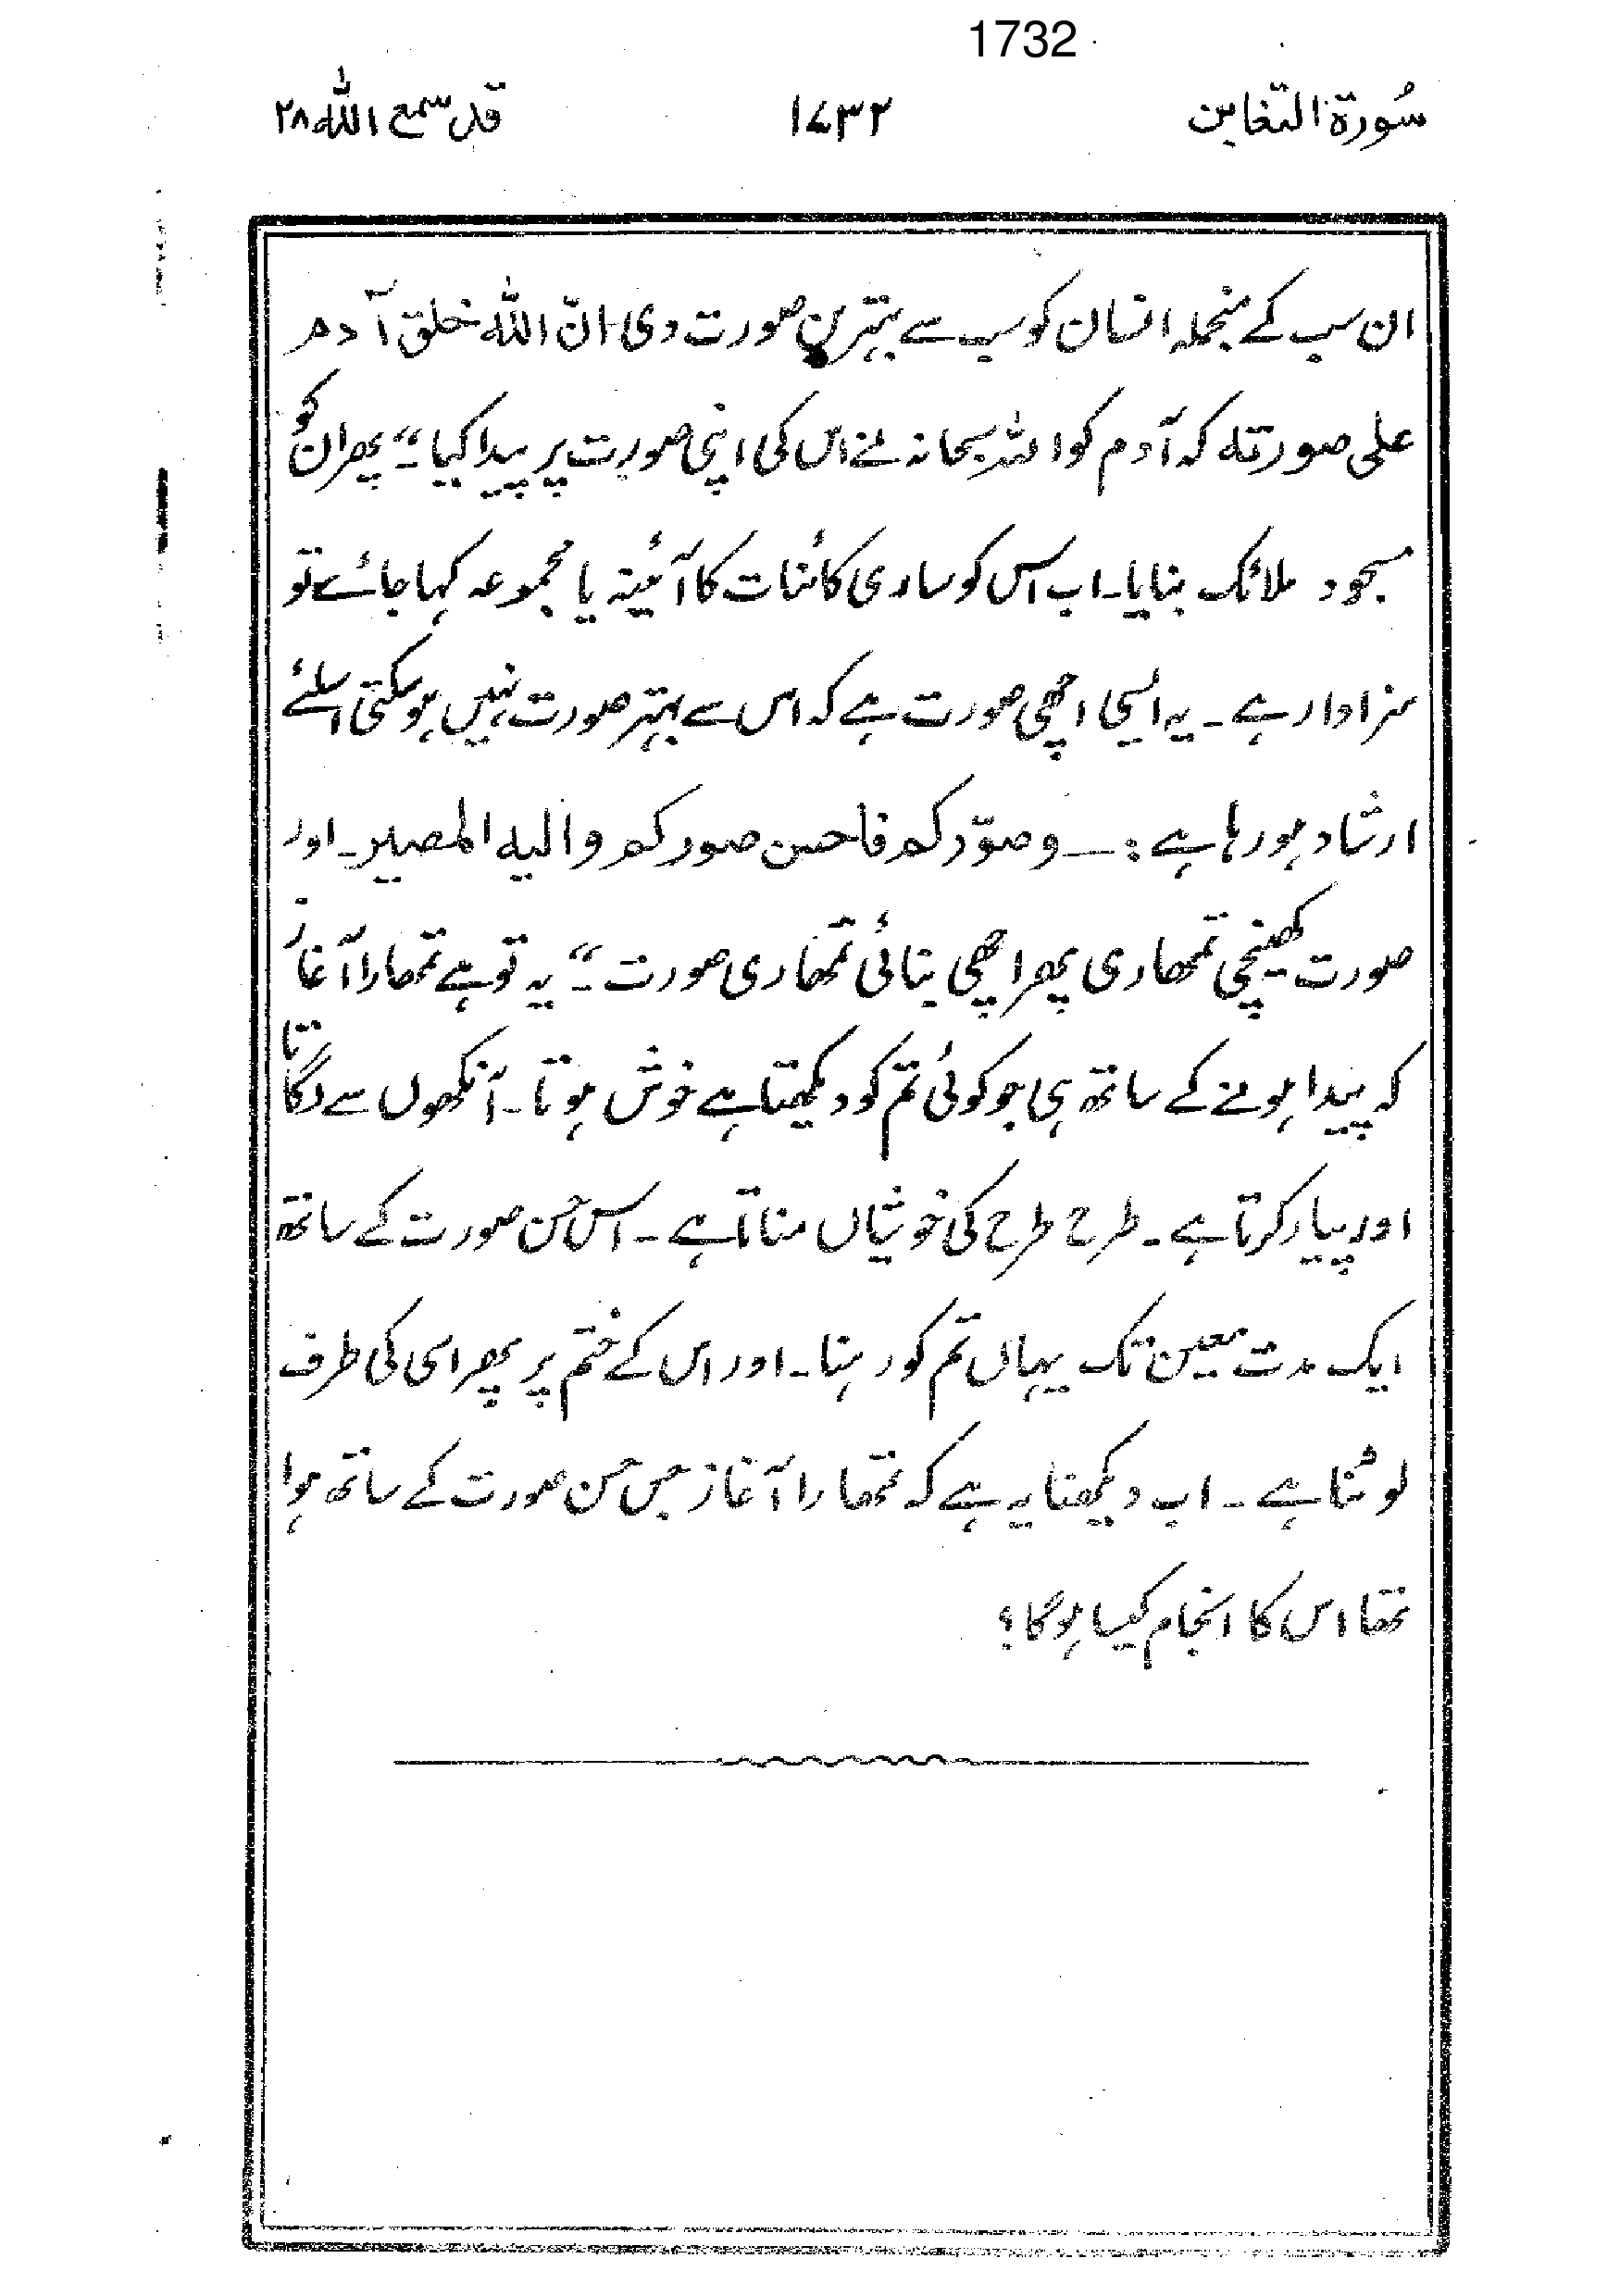 1732
سُورۃ التغابن ۱۷۳۲ قد سمع اللہ ۲۸
ان سب کے منجملہ انسان کو سب سے بہترین صورت دی انّ اللہ خلق آدم
علی صورتہ کہ آدم کو اللہ سبحانہ نے اس کی اپنی صورت پر پیدا کیا ـ" پھر ان کو
مسجود ملائک بنایا ـ اب اس کو ساری کائنات کا آئینہ یا مجموعہ کہا جائے تو
سزاوار ہے ـ یہ ایسی اچھی صورت ہے کہ اس سے بہتر صورت نہیں ہو سکتی اسلئے
ارشاد ہو رہا ہے :ـــ وصوّرکم فاحسن صورکم والیہ المصیر ـ اور
صورت کھینچی تمھاری پھر اچھی بنائی تمھاری صورت ـ" یہ تو ہے تمھارا آغاز
کہ پیدا ہونے کے ساتھ ہی جو کوئی تم کو دیکھتا ہے خوش ہوتا ـ آنکھوں سے لگاتا
اور پیار کرتا ہے ـ طرح طرح کی خوشیاں مناتا ہے ـ اس حسن صورت کے ساتھ
ایک مدت معین تک یہاں تم کو رہنا ـ اور اس کے ختم پر پھر اسی کی طرف
لوٹنا ہے ـ اب دیکھنا یہ ہے کہ تمھارا آغاز جس حسن صورت کے ساتھ ہوا
تھا اس کا انجام کیسا ہوگا؟